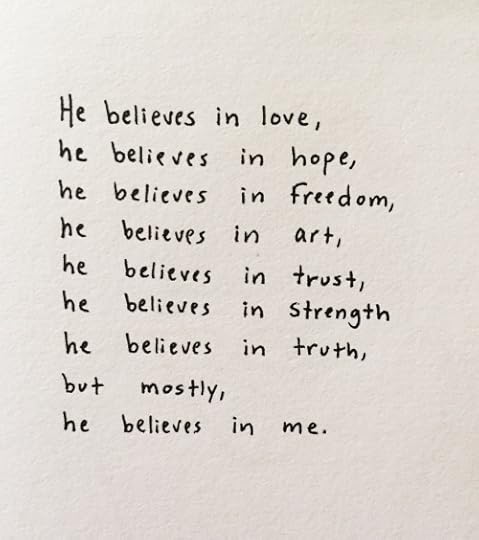 He believes in love,
he believes in hope,
he believes in freedom,
he believes in art,
he believes in trust,
he believes in strength
he believes in truth,
but mostly,
he believes in me.